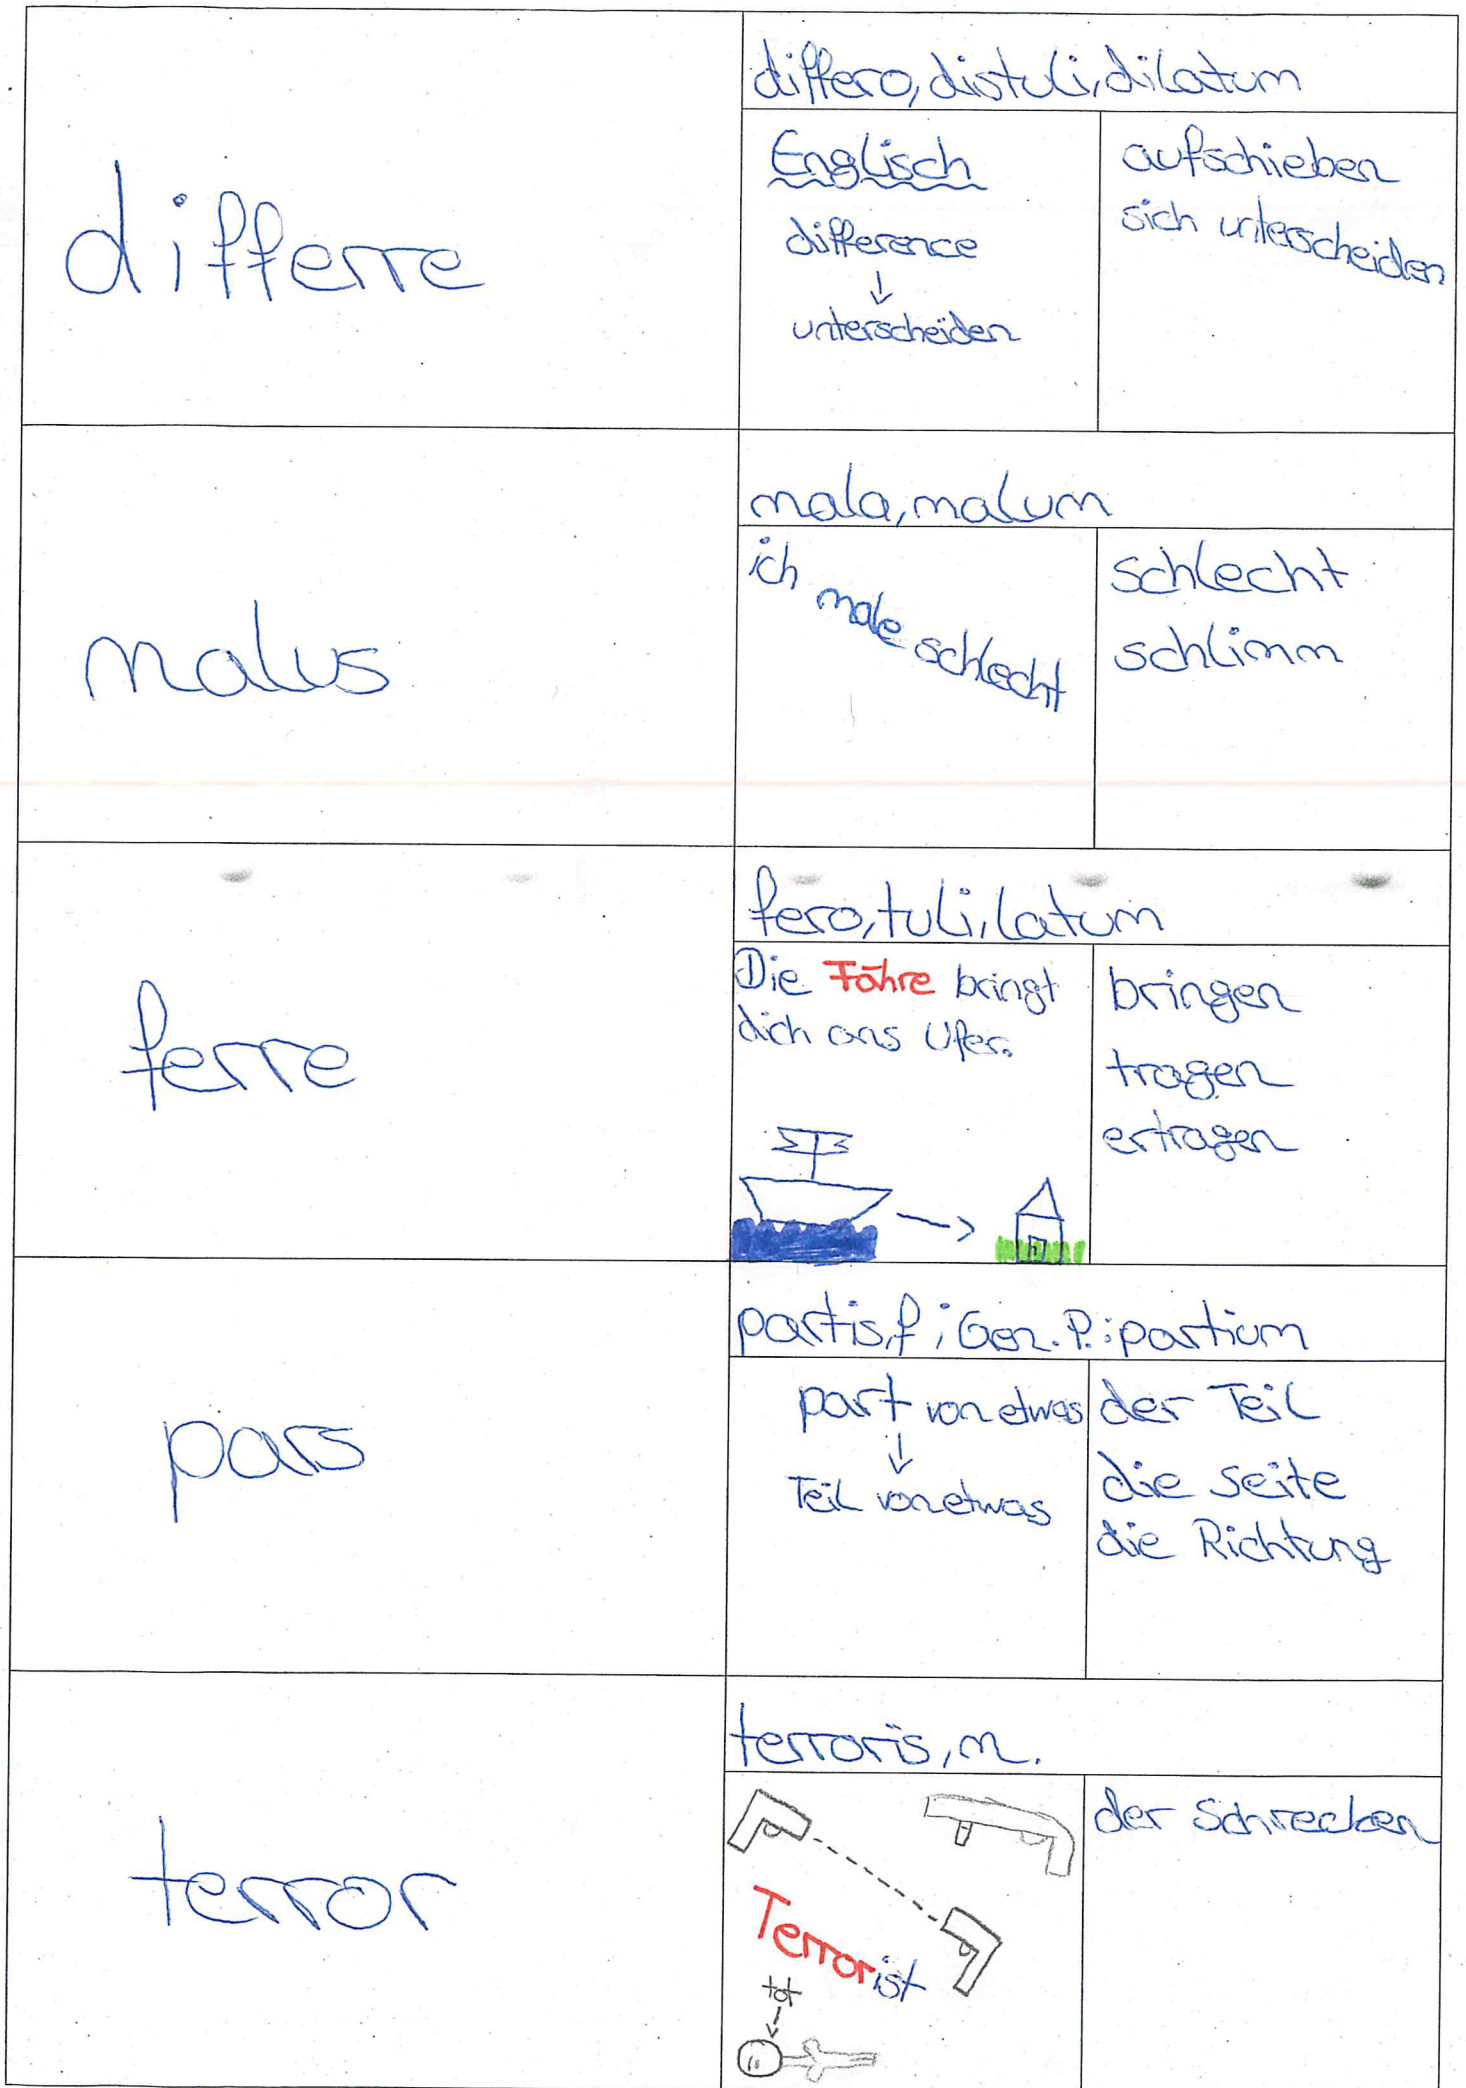 differre
differo, distuli, dilatum
Englisch
difference
↓
unterscheiden
aufschieben
sich unterscheiden
malus
mala, malum
ich male schlecht
schlecht
schlimm
ferre
fero, tuli, latum
Die Fähre bringt
dich ans Ufer.
bringen
tragen
ertragen
pars
partis, f ; Gen. P.: partium
part von etwas
↓
Teil von etwas
der Teil
die Seite
die Richtung
terror
terroris, m.
Terrorist
tot
der Schrecken